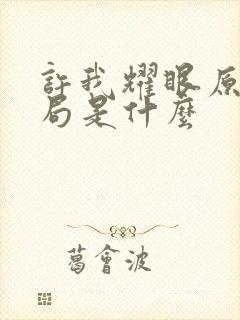 許我耀眼原
局是什麼
葛會波